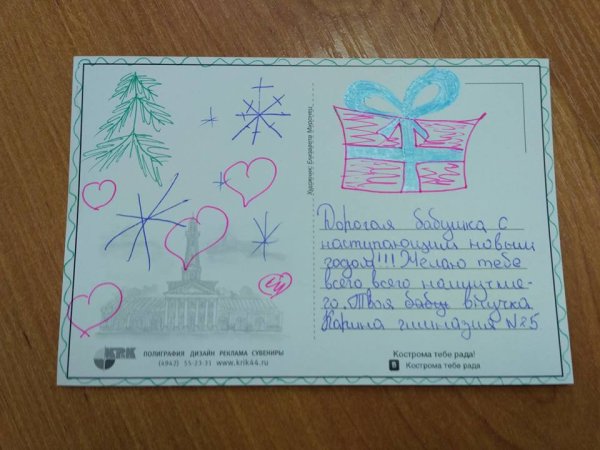 Художник Елизавета Миронец
Дорогая бабушка с
наступающим новым
годом!!! Желаю тебе
всего всего наилутше-
го. Твоя бабуш внучка
Карина гимназия №25
KRK
ПОЛИГРАФИЯ ДИЗАЙН РЕКЛАМА СУВЕНИРЫ
(4942) 55-23-31 www.krik44.ru
Кострома тебе рада!
В Кострома тебе рада